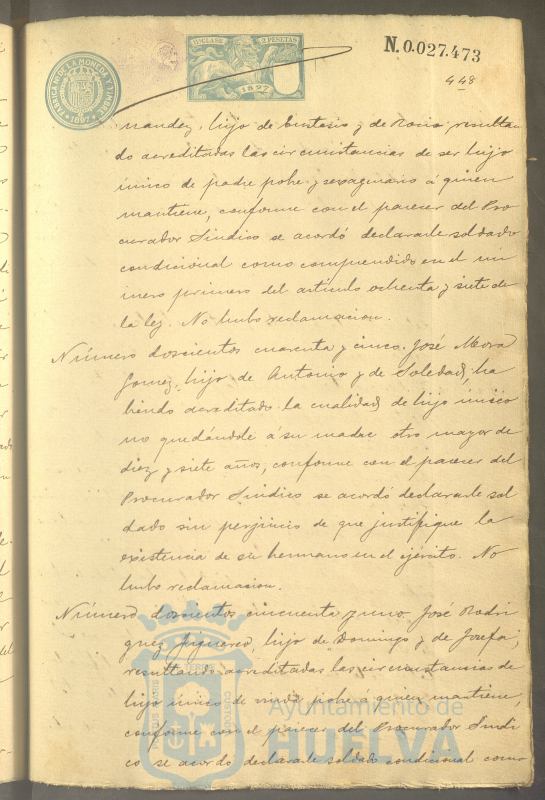 FABRICA N. DE LA MONEDA Y TIMBRE
1897
11ª CLASE 2 PESETAS
1897
N.0.027.473
448
nandez, hijo de Eustasio y de Rocio; resultan
do acreditadas las circunstancias de ser hijo
único de padre pobre y sexagenario á quien
mantiene, conforme con el parecer del Pro
curador Sindico se acordó declararle soldado
condicional como comprendido en el nú
mero primero del articulo ochenta y siete de
la ley. No hubo reclamacion.
Número doscientos cuarenta y cinco. José Mora
Gomez, hijo de Antonio y de Soledad; ha
biendo acreditado la cualidad de hijo único
no quedándole á su madre otro mayor de
diez y siete años, conforme con el parecer del
Procurador Sindico se acordó declararle sol
dado sin perjuicio de que justifique la
existencia de su hermano en el ejército. No
hubo reclamacion.
Número doscientos cincuenta y uno. José Rodri
guez Figuereo, hijo de Domingo y de Josefa;
resultando acreditadas las circunstancias de
hijo único de viuda pobre á quien mantiene,
conforme con el parecer del Procurador Sindi
co se acordó declararle soldado condicional como
Ayuntamiento de
HUELVA